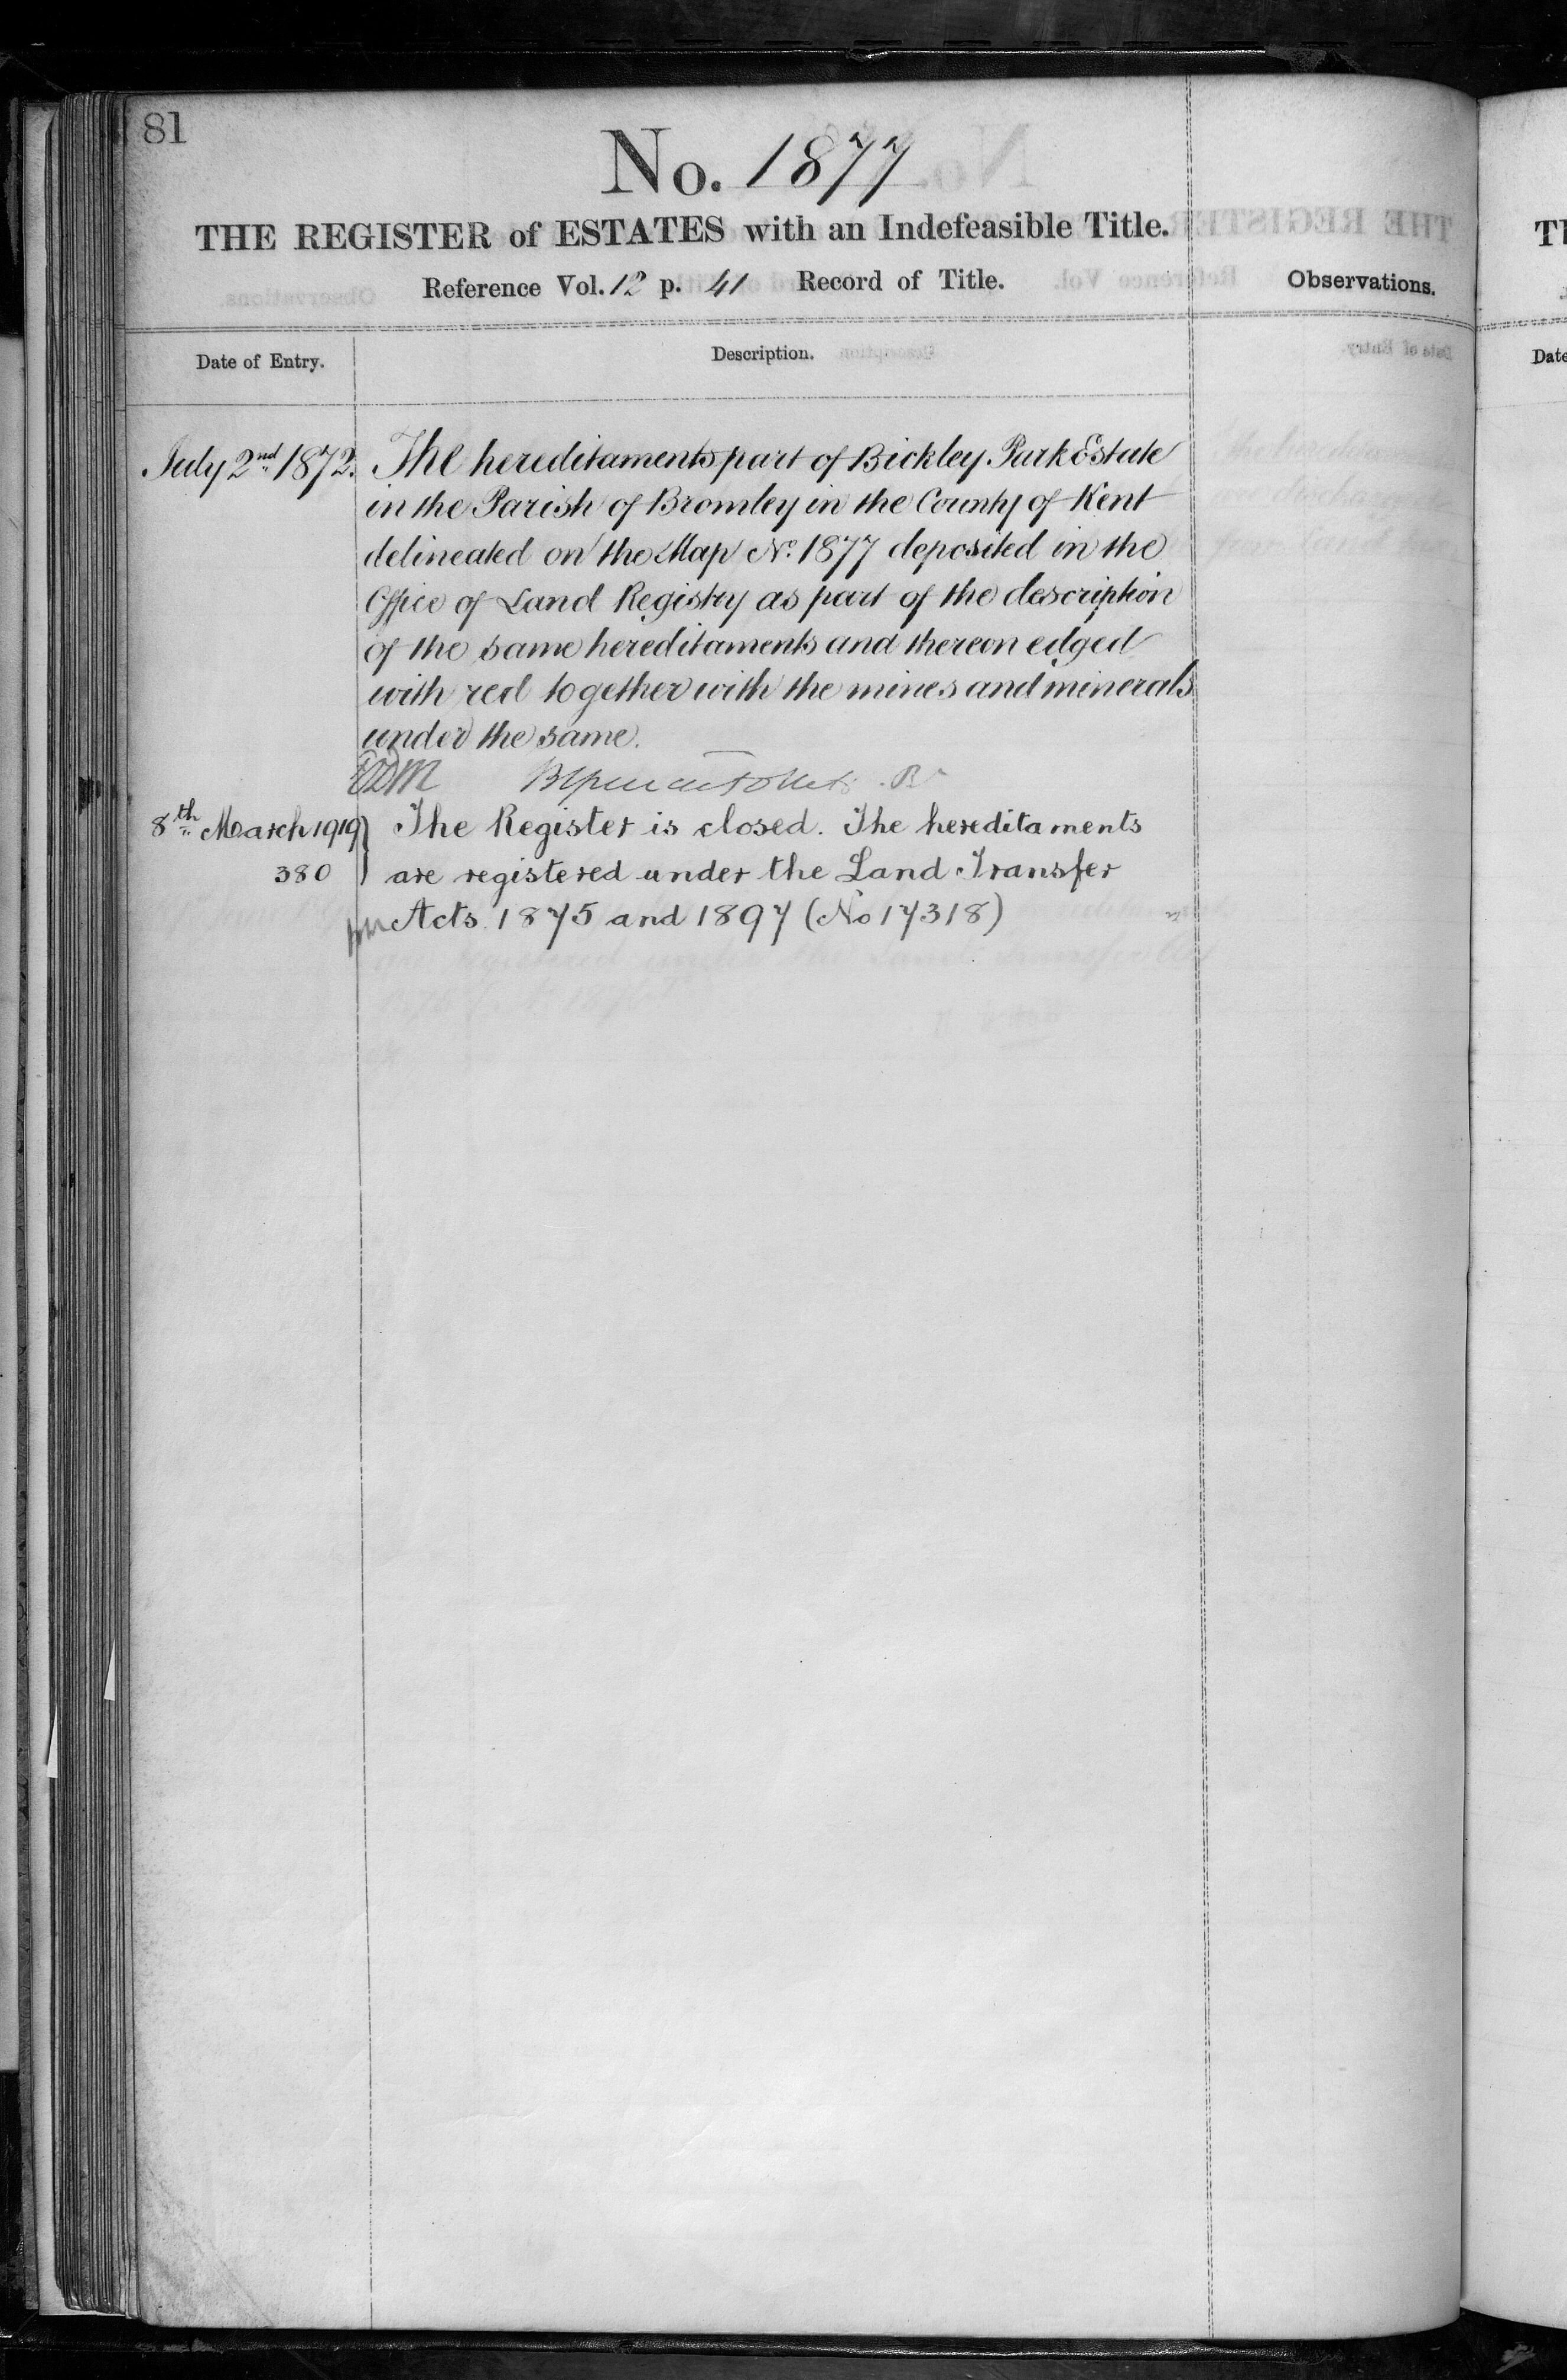 81
No. 1877
THE REGISTER of ESTATES with an Indefeasible Title.
Reference Vol. 12 p. 41 Record of Title.
Observations.
Date of Entry.
Description.
July 2nd 1872. The hereditaments part of Bickley Park Estate
in the Parish of Bromley in the County of Kent
delineated on the Map No. 1877 deposited in the
Office of Land Registry as part of the description
of the same hereditaments and thereon edged
with red together with the mines and minerals
under the same.
8th March 1919 } The Register is closed. The hereditaments
380 are registered under the Land Transfer
Acts 1875 and 1897 (No 17318)
Date